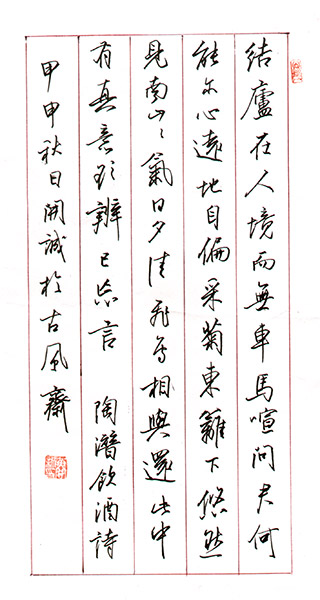 結廬在人境而無車馬喧問君何
能尔心遠地自偏采菊東籬下悠然
見南山〻氣日夕佳飛鳥相與還此中
有真意欲辨已忘言 陶潛飲酒詩
甲申秋日開誠於古風齋